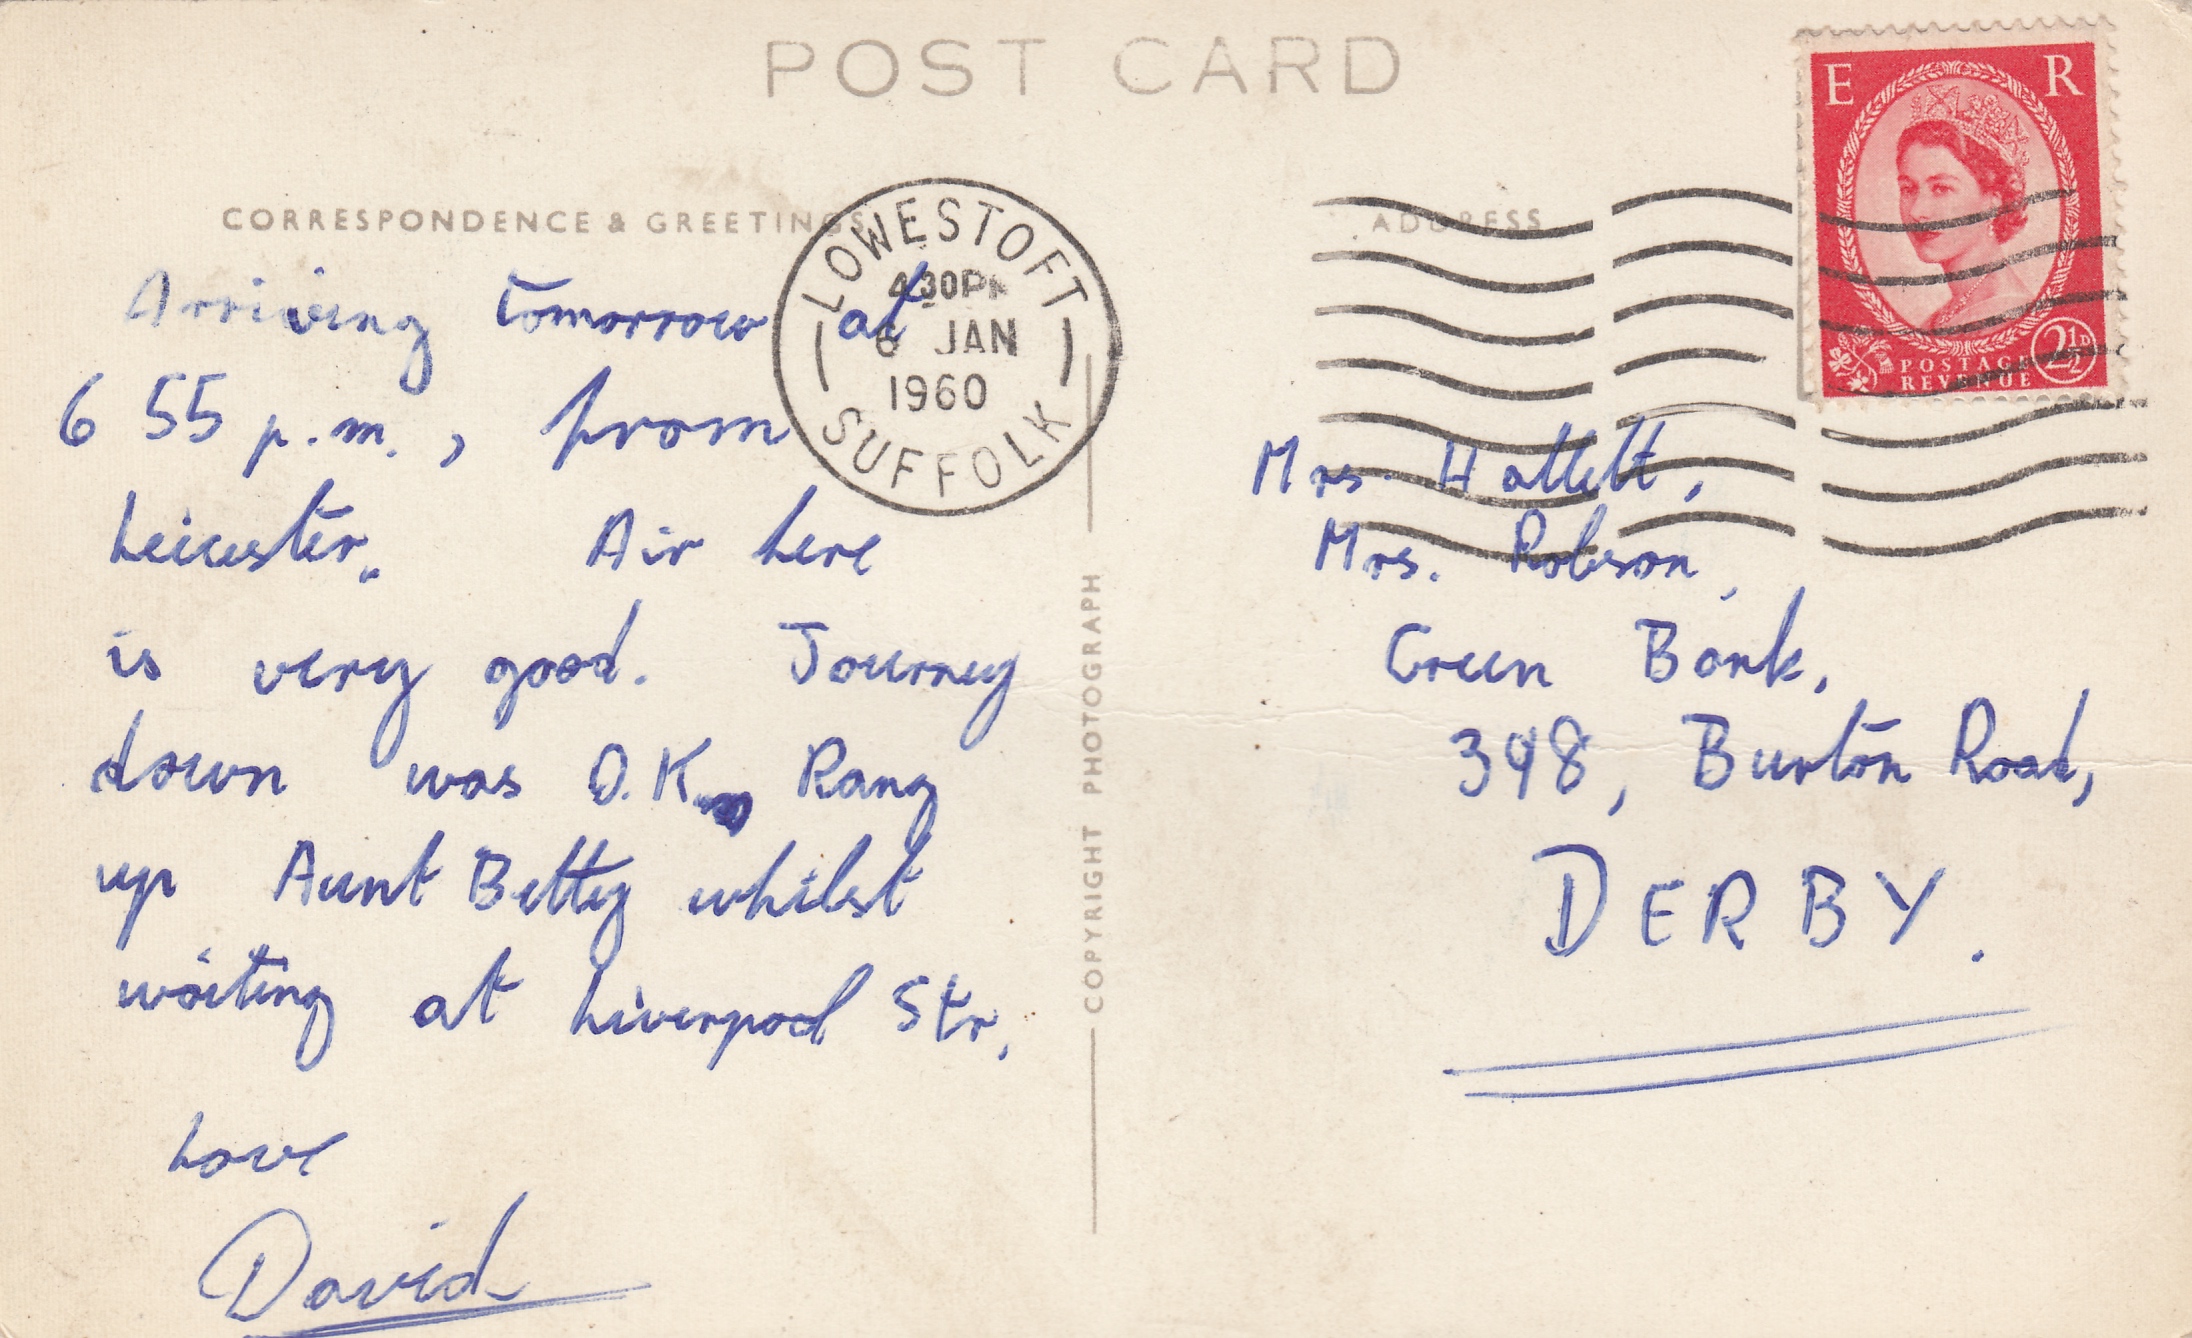 POST CARD
E R
POSTAGE
REVENUE
2½D
CORRESPONDENCE & GREETINGS
ADDRESS
LOWESTOFT
4.30PM
6 JAN
1960
SUFFOLK
Arriving tomorrow at
6 55 p.m., from
Leicester. Air here
is very good. Journey
down was O.K. Rang
up Aunt Betty whilst
waiting at Liverpool Str.
Love
David
COPYRIGHT PHOTOGRAPH
Mrs. Hallett,
Mrs. Robson,
Green Bank,
398, Burton Road,
DERBY.